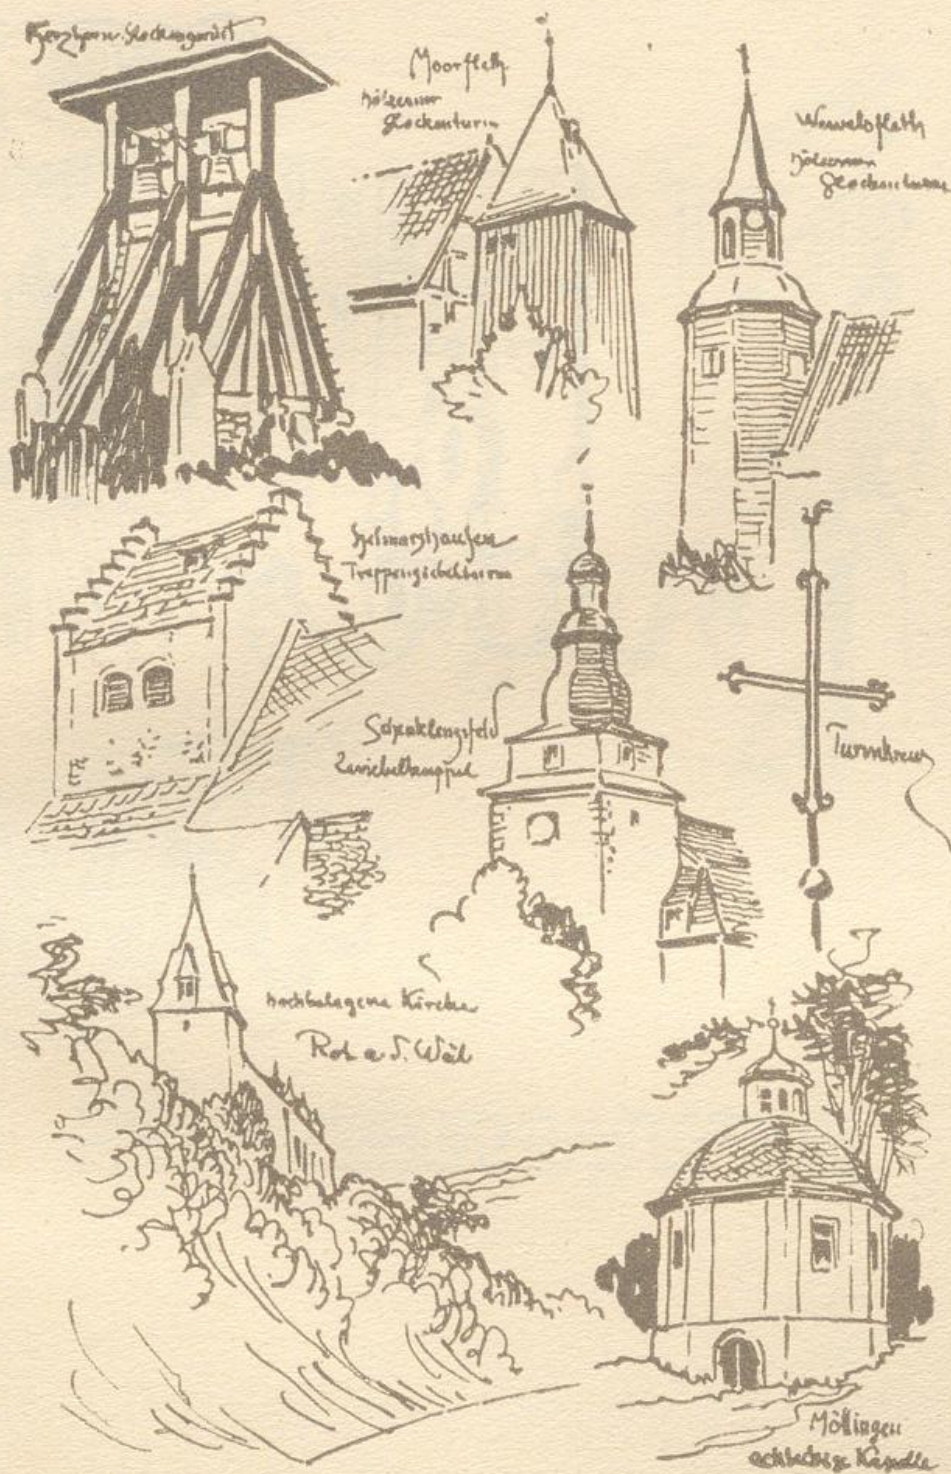 Herzhorn. Glockengerüst
Moorfleth
hölzerner
Glockenturm
Wewelsfleth
hölzerner
Glockenturm
Helmarshausen
Treppengiebelturm
Schenklengsfeld
Zwiebelkuppel
Turmkreuz
hochgelegene Kirche
Rot a. S.
Möllingen
achteckige Kapelle